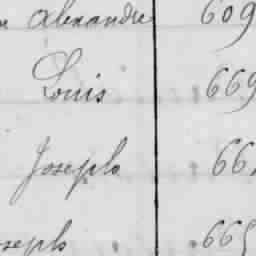 Alexandre 609
Louis 669
Joseph 66
oseph 665